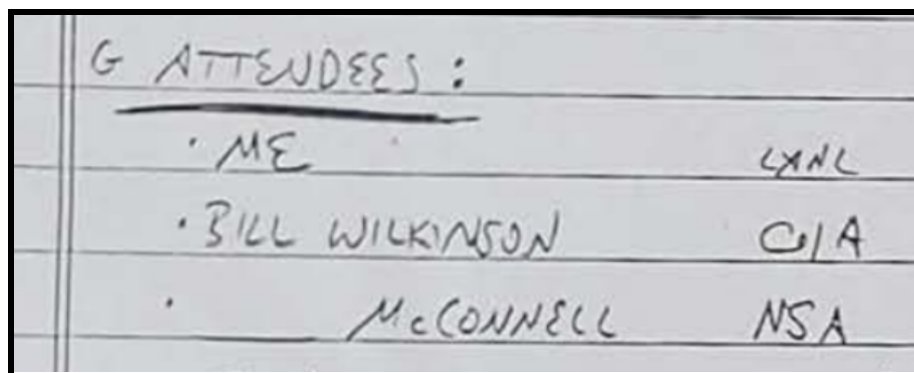 G ATTENDEES:
· ME LANL
· BILL WILKINSON CIA
· ____ McCONNELL NSA